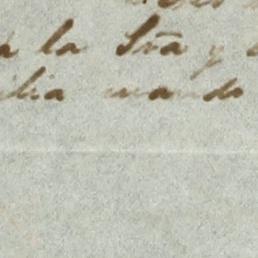 a la Sra y
ilia mando